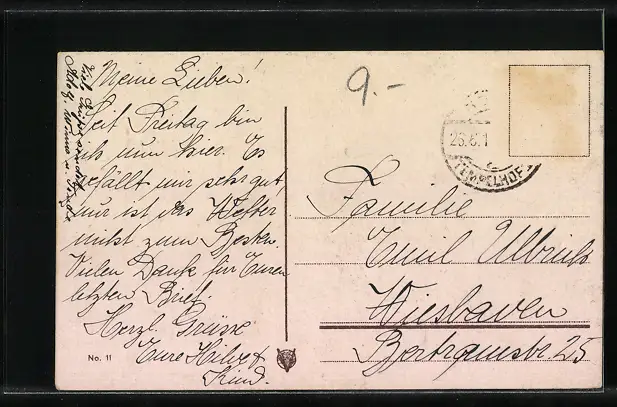 Meine Lieben!
Seit Freitag bin
ich nun hier. Es
gefällt mir sehr gut
nur ist das Wetter
nicht zum Besten.
Vielen Dank für Euren
letzten Brief.
Herzl. Grüsse
Eure
Kind.
9.-
26.6.1
TEMPELHOF
Familie
Emil
Wiesbaden
Bertramstr. 25
No. 11